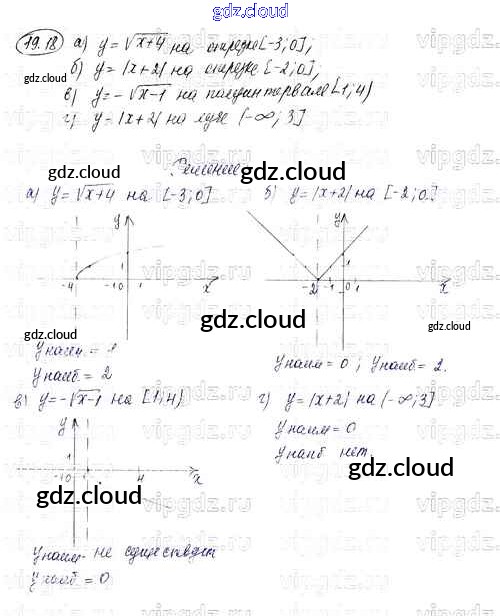 gdz.cloud
19.18 а) y = √x+4 на отрезке [-3; 0];
gdz.cloud
б) y = |x+2| на отрезке [-2; 0];
в) y = -√x-1 на полуинтервале [1; 4)
г) y = |x+2| на луче (-∞; 3]
Решение
gdz.cloud gdz.cloud
а) y = √x+4 на [-3; 0] б) y = |x+2| на [-2; 0]
y y
1
-4 -1 0 1 x -2 -1 0 1 x
gdz.cloud gdz.cloud
Yнаим. = 1
Yнаиб = 2
Yнаим = 0; Yнаиб = 2.
в) y = -√x-1 на [1; 4) г) y = |x+2| на (-∞; 3]
y
Yнаим = 0
Yнаиб нет.
1
-1 0 1 x
gdz.cloud gdz.cloud
Yнаим - не существует
Yнаиб = 0
vipgdz.ru